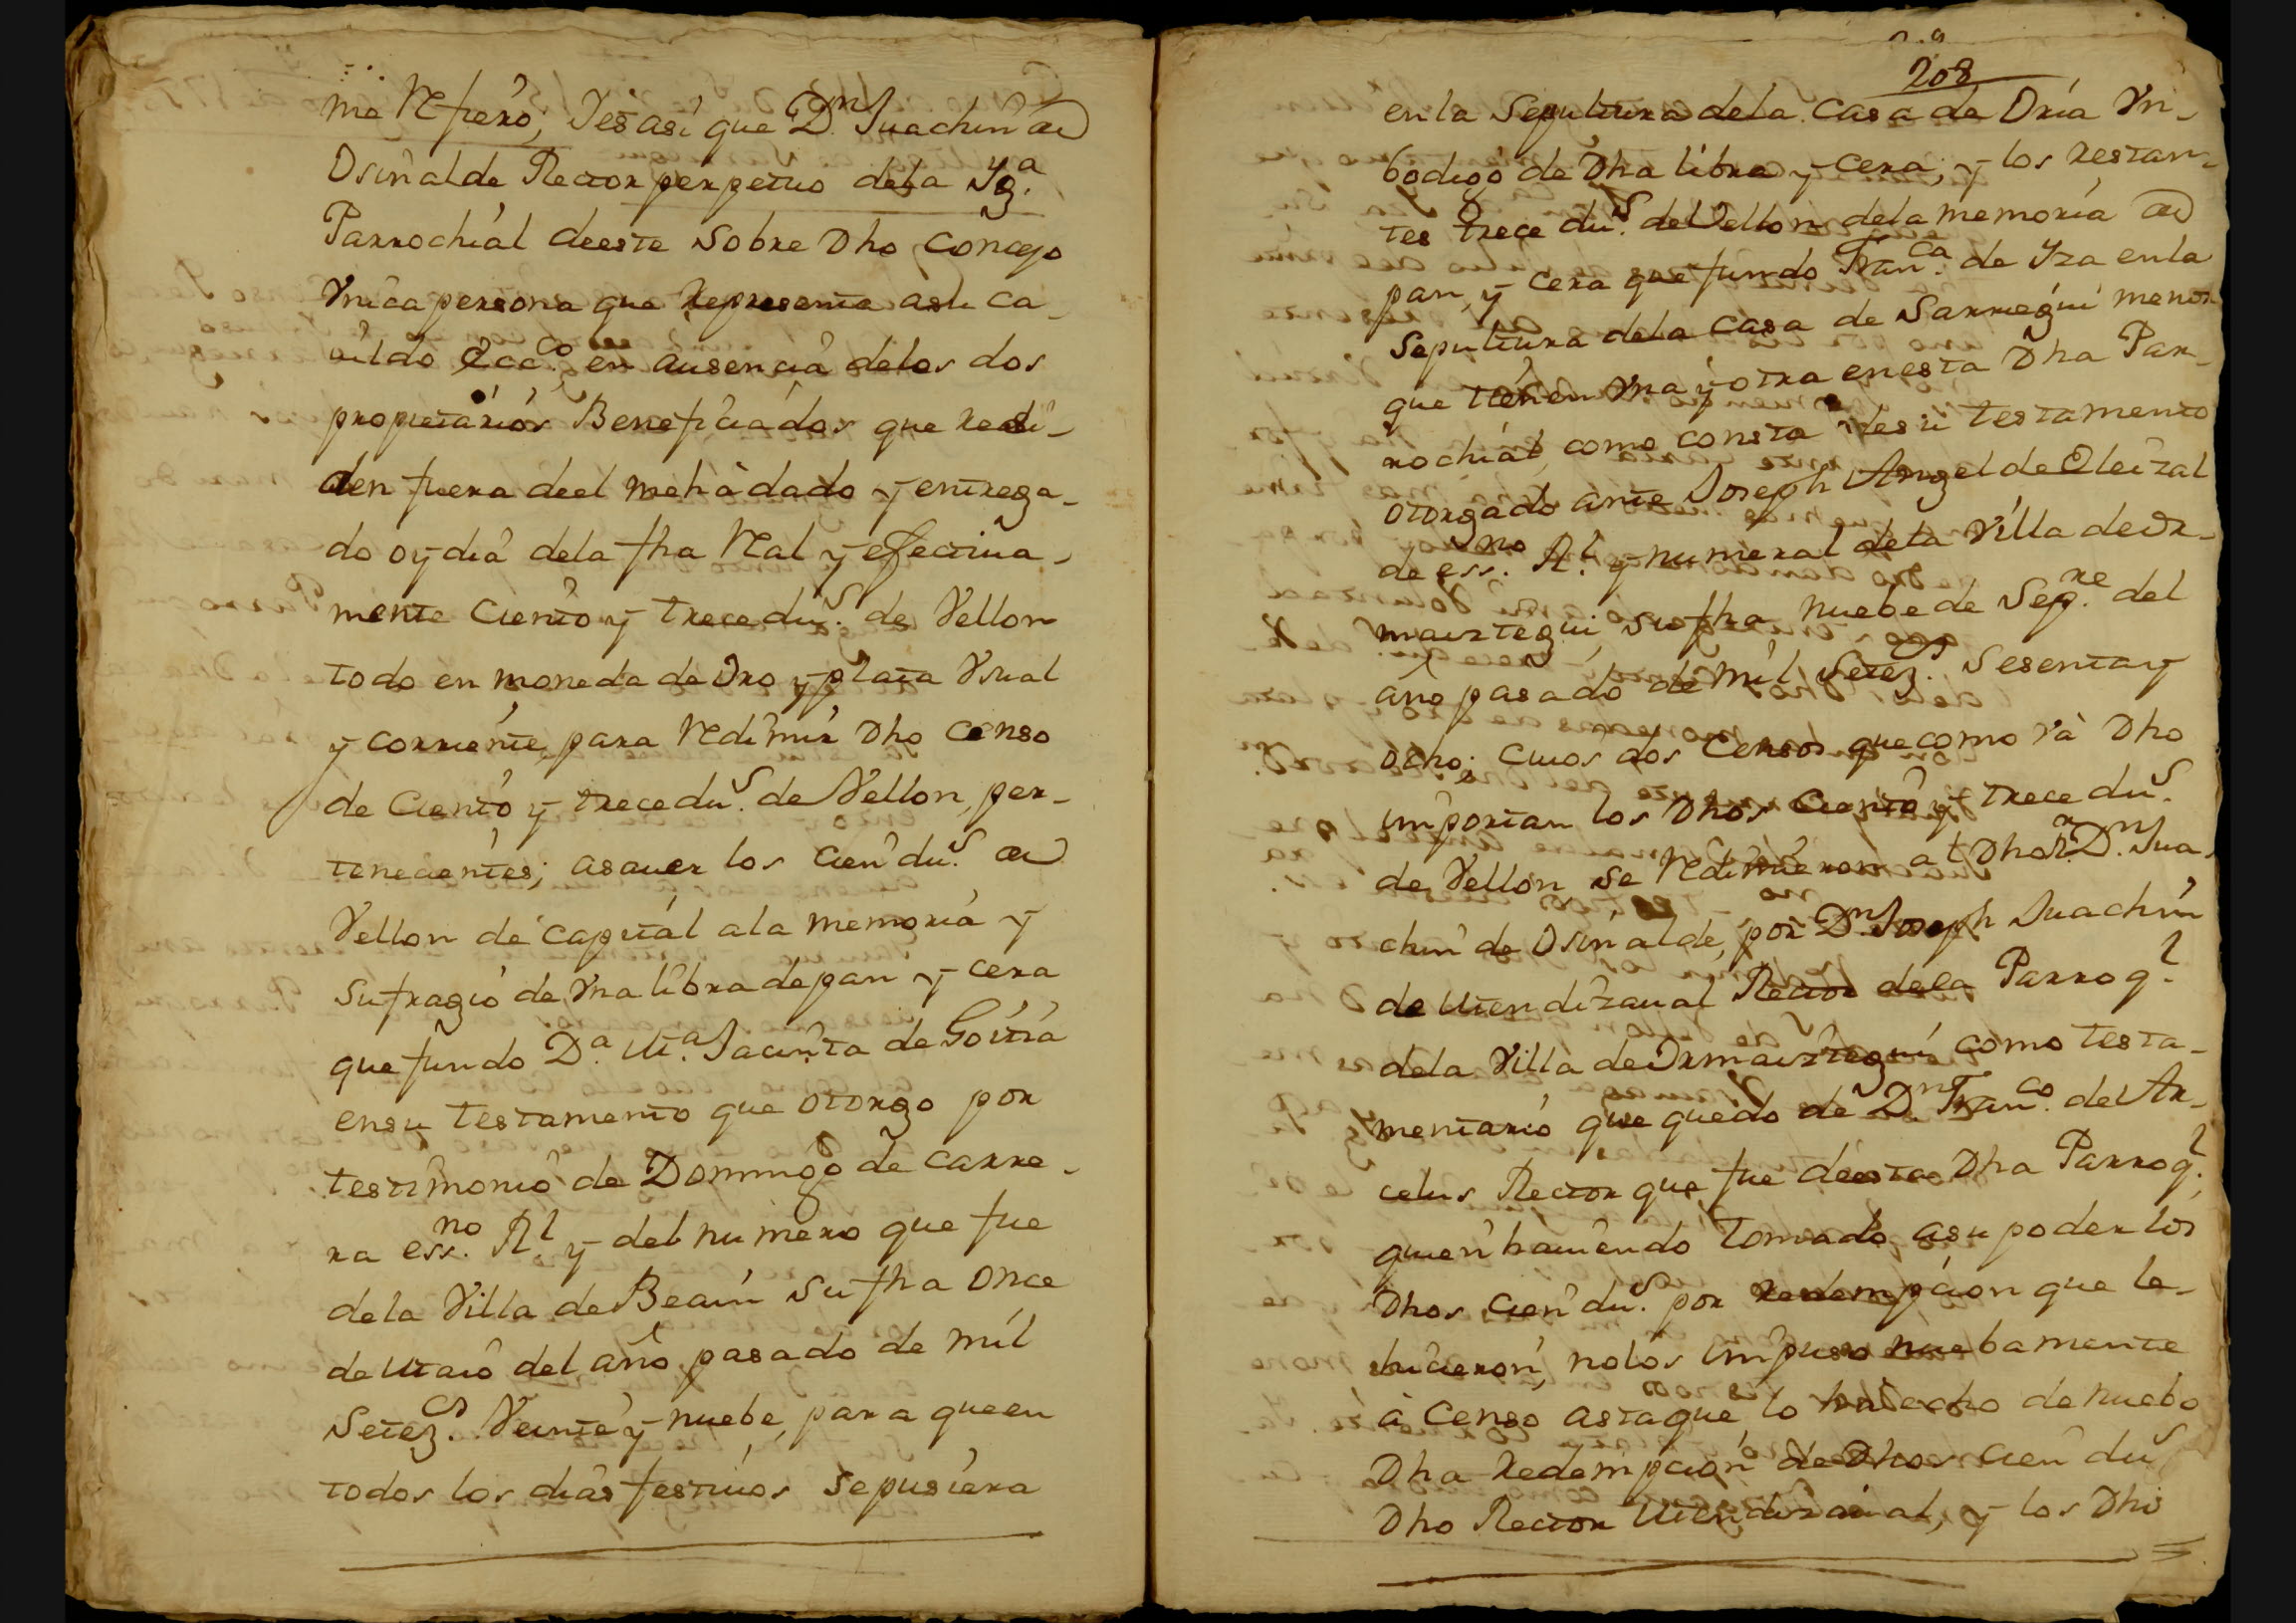 me Refiero; Yesasi que D.n Juachin de
Osinalde Rector perpetuo dela Yg.a
Parrochial deeste sobre Dho Concejo
Vnica persona que Representa asu ca-
uildo Ecc.co en ausencia delos dos
propietarios Beneficiados que resi-
den fuera deel mehà dado y entrega-
do oydia dela fha Real y efectiua-
mente ciento y trece du.s de Vellon
todo en moneda de Oro y plata Vsual
y corriente, para Redimir Dho Censo
de Ciento y trece du.s de Vellon, per-
tenecientes; asauer los cien du.s de
Vellon de capital ala memoria y
sufragio de Vna libra de pan y cera
que fundo D.a M.a Jacinta de Goitia
ensu testamento que otorgo por
testimonio de Domingo de Carre-
ra ess.no Rl. y del numero que fue
dela Villa de Beain su fha once
de Maio del año pasado de mil
Setez.os Veinte y nuebe, para queen
todos los dias festiuos sepusiera
208
enla Sepultura dela Casa de Oria Vn
bodigo de Dha libra y cera; y los restan-
tes trece du.s de Vellon dela memoria de
pan, y cera que fundo Fran.ca de Yza enla
Sepultura dela Casa de Sarriegui menor
que tienen Vna y otra enesta Dha Par-
rochial, como consta desu testamento
otorgado ante Joseph Angel de Oleizal
de ess.no Rl. y numeral dela Villa de Or-
maiztegui, su fha nuebe de Sep.re del
año pasado de mil Setez.os Sesenta y
ocho; cuios dos Censos que como và Dho
importan los Dhos Ciento y trece du.s
de Vellon se Redimieron al Dho R.r D.n Jua-
chin de Osinalde, por D.n Joseph Juachin
de Mendizaual Rector dela Parroq.l
dela Villa de Ormaiztegui como testa-
mentario que quedo de D.n Fran.co de Ar-
celus Rector que fue deesta Dha Parroq.l,
quien hauiendo tomado asu poder los
Dhos Cien du.s por redempcion que le-
hicieron, nolos impuso nuebamente
à Censo astaque lo ha echo de nuebo
Dha redempcion de Dhos Cien du.s
Dho Rector Mendizaual, y los Dhos